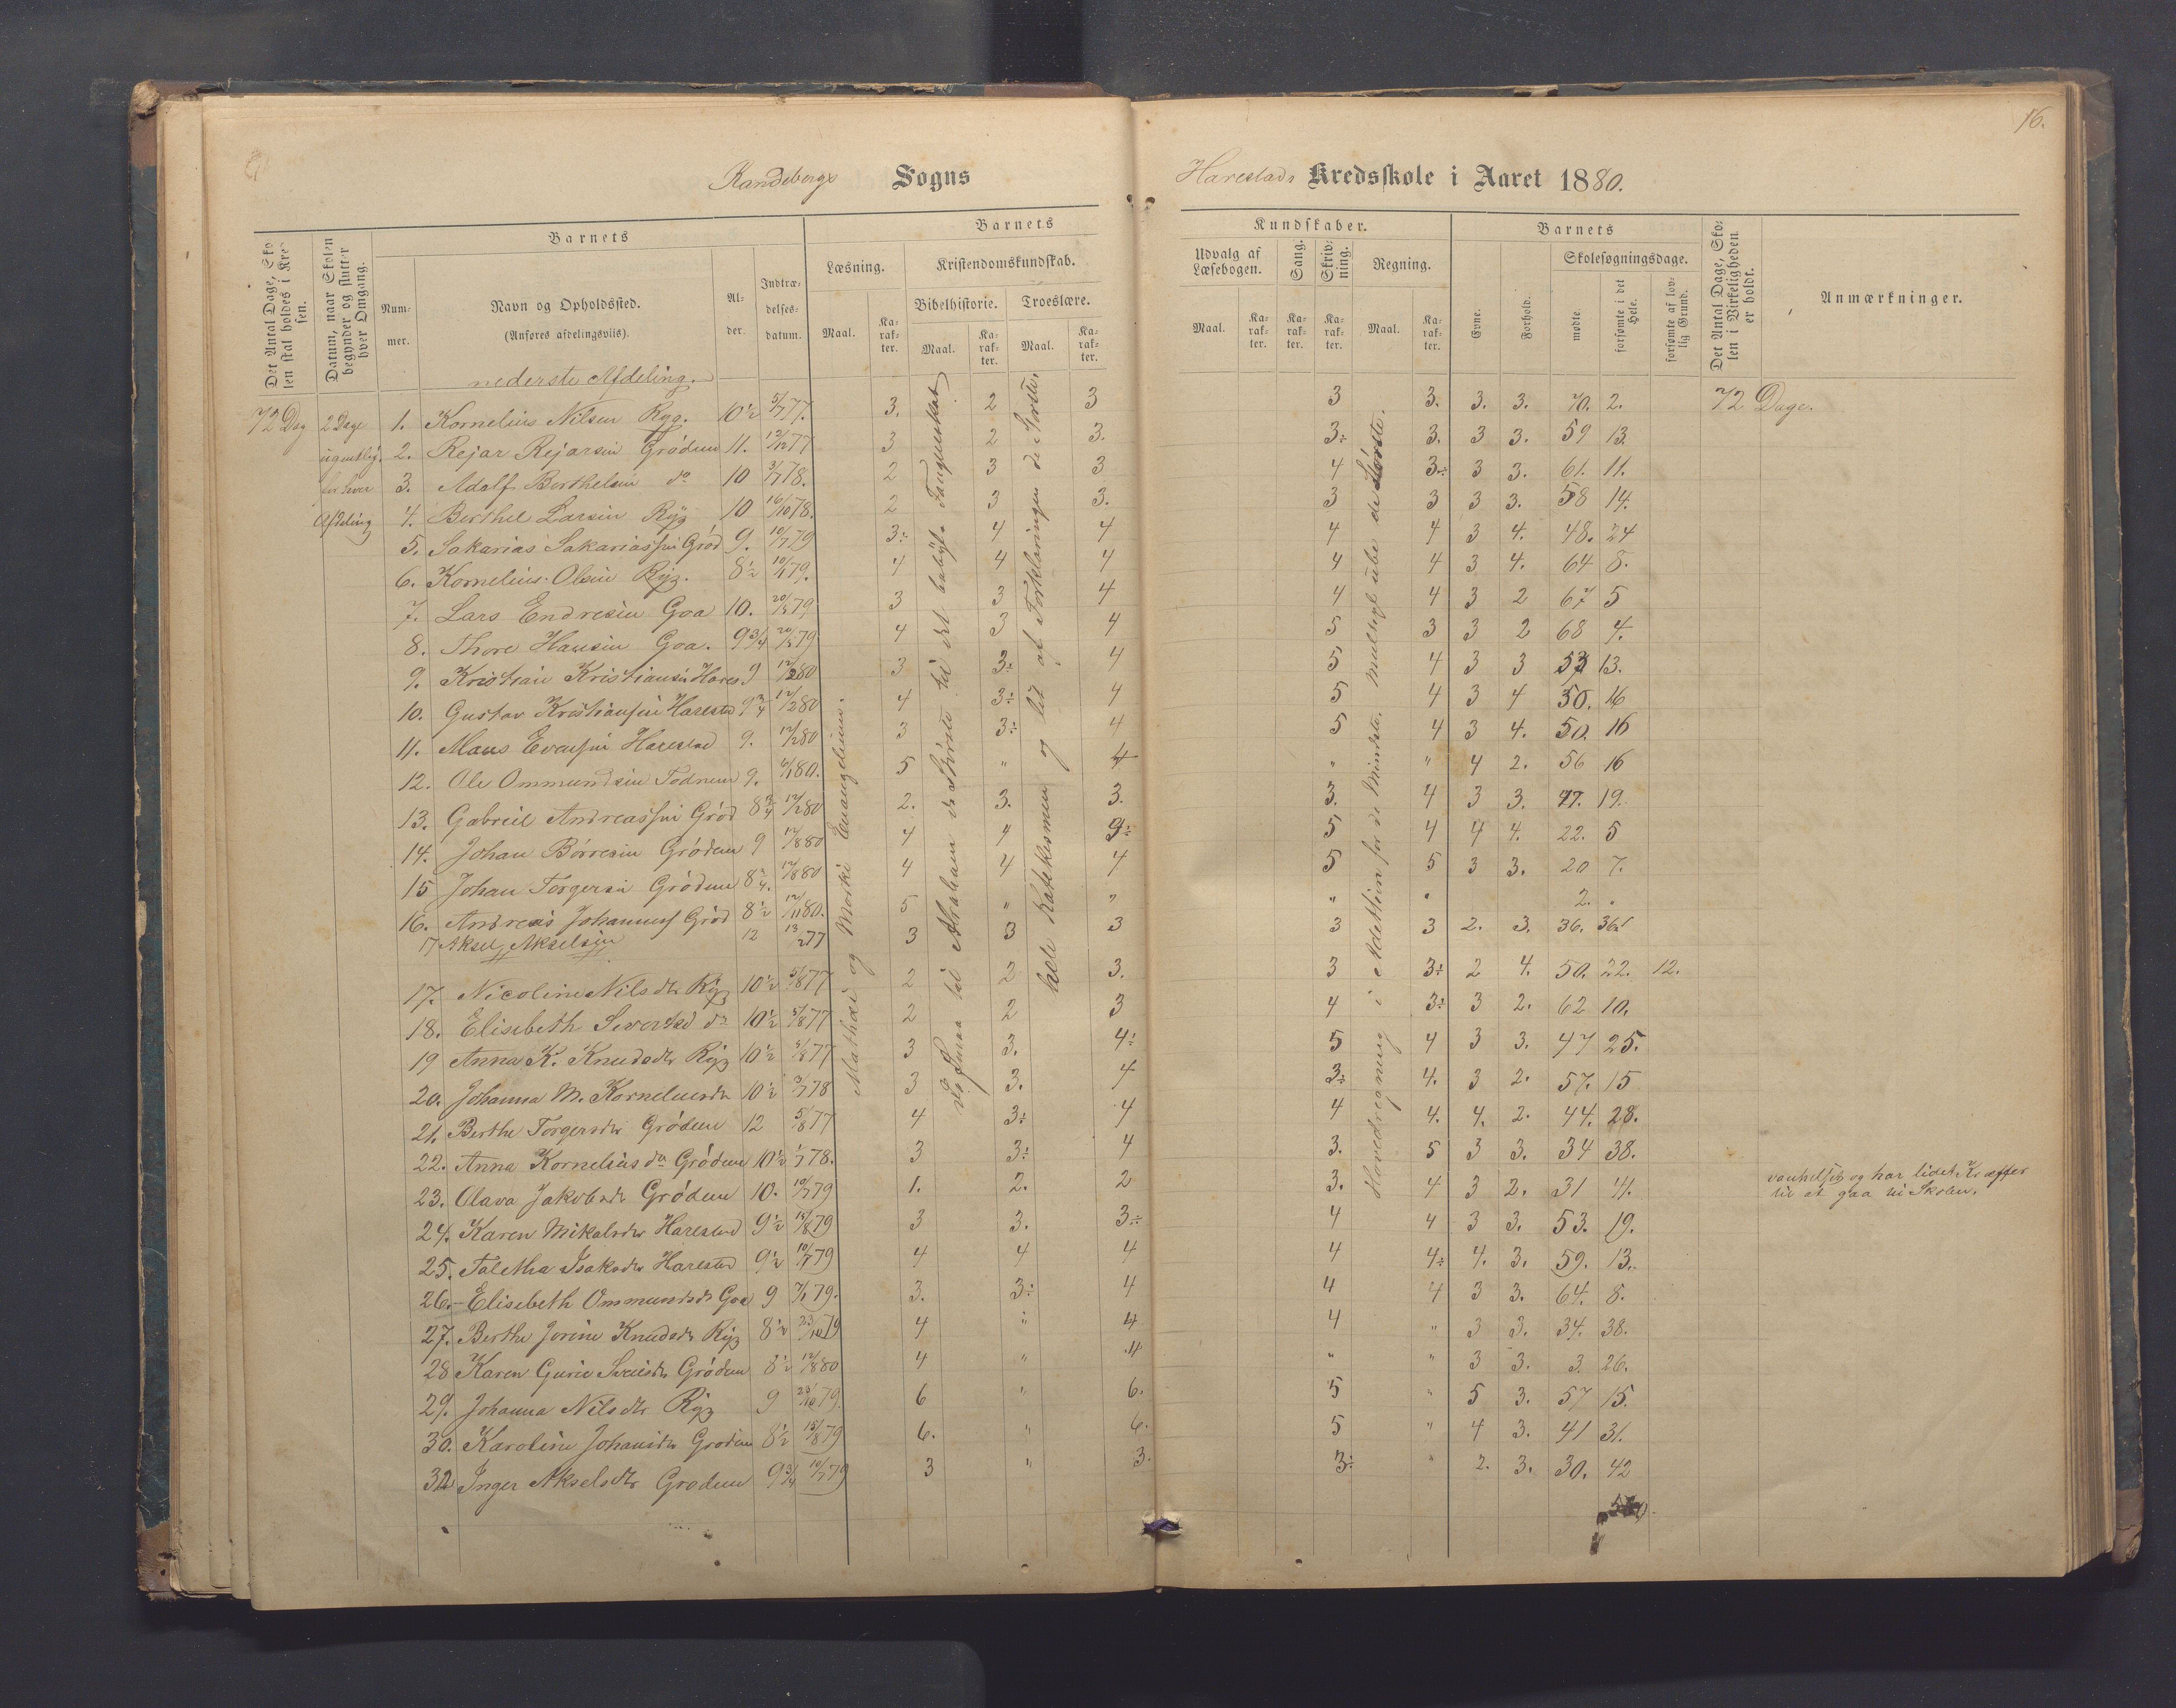 16.
Randebergs Sogns
Harestads Kredsskole i Aaret 1880.
Det Antal Dage, Skolen skal holdes i Kredsen.
Datum, naar Skolen begynder og slutter hver Omgang.
Barnets
Nummer.
Navn og Opholdssted.
(Anføres afdelingsviis).
Alder.
Indtrædelsesdatum.
Barnets
Læsning.
Kristendomskundskab.
Bibelhistorie.
Troeslære.
Maal.
Karakter.
Maal.
Karakter.
Maal.
Karakter.
Kundskaber.
Udvalg af Læsebogen.
Sang.
Skrivning.
Regning.
Maal.
Karakter.
Karakter.
Karakter.
Maal.
Karakter.
Barnets
Evne.
Forhold.
Skolesøgningsdage.
mødte.
forsømte i det Hele.
forsømte af lovlig Grund.
Det Antal Dage, Skolen i Virkeligheden er holdt.
Anmærkninger.
nederste Afdeling.
72 Dag 2 Dage 1. Kornelius Nilsen Ryg. 10½ 5/7 77. 3. 2 3 3 3. 3. 3. 70. 2. 72 Dage.
ugentlig 2. Rejar Rejarsen Grødem 11. 12/12 77 3 2 3. 3÷ 3. 3 3. 59 13.
for hver 3. Adolf Berthelsen do 10 3/7 78. 2 3 3 4 3÷ 3 3. 61. 11.
Afdeling 4. Berthel Larsen Ryg 10 16/10 78. 2 3 3. 3 3 3 3. 58 14.
5. Sakarias Sakariassen Grød 9. 10/7 79 3÷ 4 4 4 4 3 4. 48. 24
6. Kornelius Olsen Ryg. 8½ 10/7 79. 4 4 4 4 4 3 4. 64 8.
7. Lars Endresen Goa 10. 79 3 3 4 4 4 3 2 67 5
8. Thore Hansen Goa. 9¾ 79 4 3 4 5 3 3 2 68 4.
9. Kristian Kristiansen Hares 9 12/2 80 3 3÷ 4 5 4 3 3 13.
10. Gustav Kristiansen Harestd 9¾ 12/2 80 4 3÷ 4 5 4 3 4 50. 16
11. Maus Evensen Harestad 9. 12/2 80 3 3÷ 4 5 4 3 4. 50. 16
12. Ole Ommundsen Todnem 9. 80. 5 " 4 " " 4 2. 56 16
13. Gabriel Andreassen Grød 8¾ 12/2 80 2. 3. 3. 3. 4 3 3. 19.
14. Johan Børresen Grødem 9 12/8 80 4 4 5 4 4 4. 22. 5
15 Johan Torgersen Grødem 8¾. 12/8 80 4 4 4 5 5 3 3. 20 7.
16. Andreas Johannes Grød 8½ 12/11 80. 5 " " " 2. .
17 Aksel Akselsen 12 13/2 77 3 3 3 3 3 2. 3. 36. 36.
17. Nicoline Nilsdtr Ryg 10½ 5/8 77 2 2 3. 3 3÷ 2 4. 50. 22. 12.
18. Elisebeth Sivertsd do 10½ 5/8 77 2 2 3 4 3÷ 3 2. 62 10.
19 Anna K. Knudsdtr Ryg 10½ 5/8 77 3 3. 4÷ 5 4 3 3. 47 25.
20. Johanna M. Korneliusdtr 10½ 3/7 78 3 3. 4 3÷ 4. 3 2. 57. 15
21. Berthe Torgersdtr Grødem 12 5/8 77 4 3÷ 4 4 4. 4. 2. 44. 28.
22. Anna Kornelius dtr Grødem 10½ 1/7 78. 3 3÷ 4 3. 5 3 3. 34 38.
23. Olava Jakobsdtr Grødem 10. 10/7 79 1. 2. 2 3. 4 3 2. 31 41. og har lidet Kræfter
til at gaa til Skolen.
24. Karen Mikalsdtr Harestad 9½ 15/8 79 3 3. 3÷ 4 4 3 3. 53. 19.
25. Taletha Isaksdtr Harestd 9½ 10/7 79 4 4 4 4 4÷ 4. 3. 59. 13.
26. Elisebeth Ommundsdtr Goa 9 79. 3. 3÷ 4 4 4 3 3. 64. 8.
27. Berthe Jorine Knudsdtr Ryg 8½ 23/10 79 4 " 4 4 " 3 3. 34. 38.
28 Karen Gurie Sveisdtr Grødem 8½ 12/8 80 4 " 4 " " 3 3. 3. 26.
29. Johanna Nilsdtr Ryg 9 23/10 79. 6 " 6. 5 " 5 3. 57 15.
30. Karoline Johansdtr Grødem 8½ 15/8 79 6. " 6. 5 " 4 3. 41 31.
32 Inger Akselsdtr Grødem 9¾ 10/7 79 3 " 3. 3÷ " 2. 3. 30. 42
Mathæi og Marki Evangelium.
de Smaa til Abraham de Større til det babylo. Fangenskab
hele Katekismen og lidt af Forklaringen de Første.
Hovedregning i Addition for de Mindste. Multipl. ube. de Største.